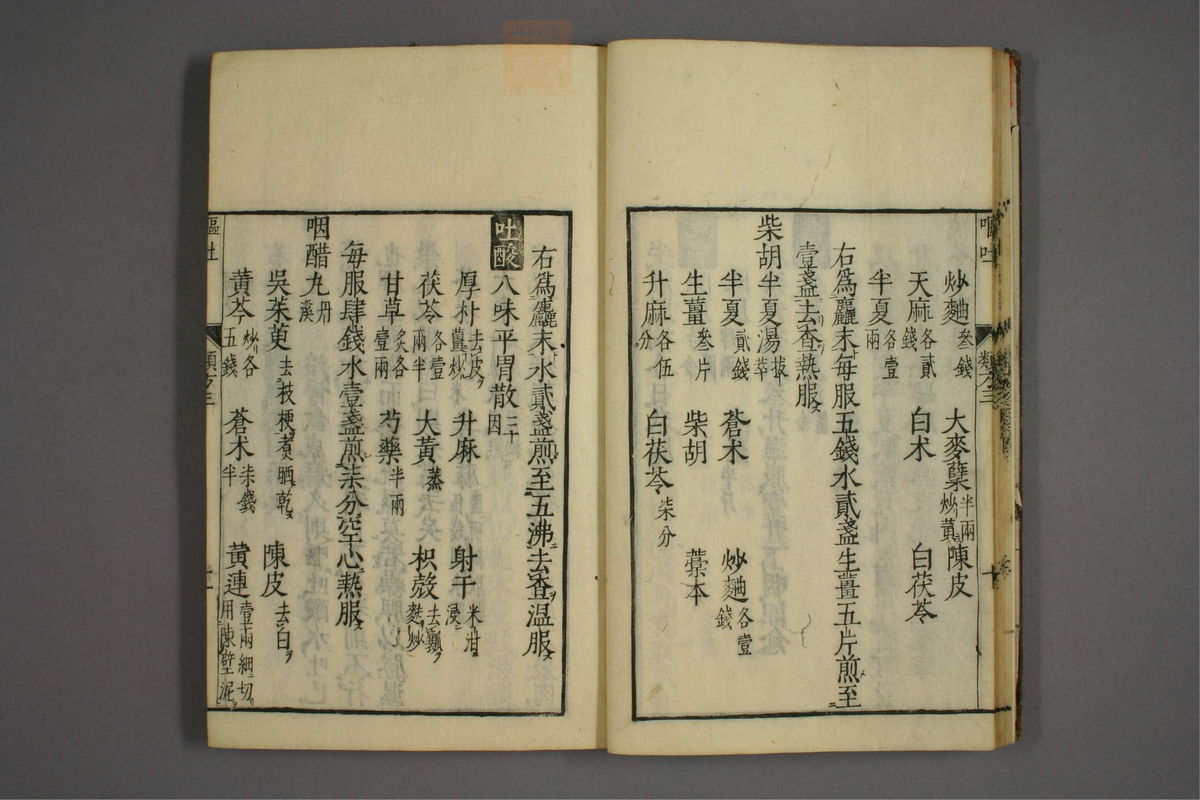 嘔吐 類方三 十
炒麯叁錢 大麥櫱半兩炒黃 陳皮
天麻各貳錢 白朮 白茯苓
半夏各壹兩
右爲麤末每服五錢水貳盞生薑五片煎至
壹盞去查熱服
柴胡半夏湯拔萃
半夏貳錢 蒼朮 炒麯各壹錢
生薑叁片 柴胡 藁本
升麻各伍分 白茯苓柒分
右爲麤末水貳盞煎至五沸去查温服
吐酸 八味平胃散三十因
厚朴去皮薑炒 升麻 射干米泔浸
茯苓各壹兩半 大黃蒸 枳殼去瓤麩炒
甘草炙各壹兩 芍藥半兩
每服肆錢水壹盞煎柒分空心熱服
咽醋丸丹溪
吳茱萸去枝梗煮晒乾 陳皮去白
黃芩炒各五錢 蒼朮柒錢半 黃連壹兩細切用陳壁泥
嘔吐 類方三